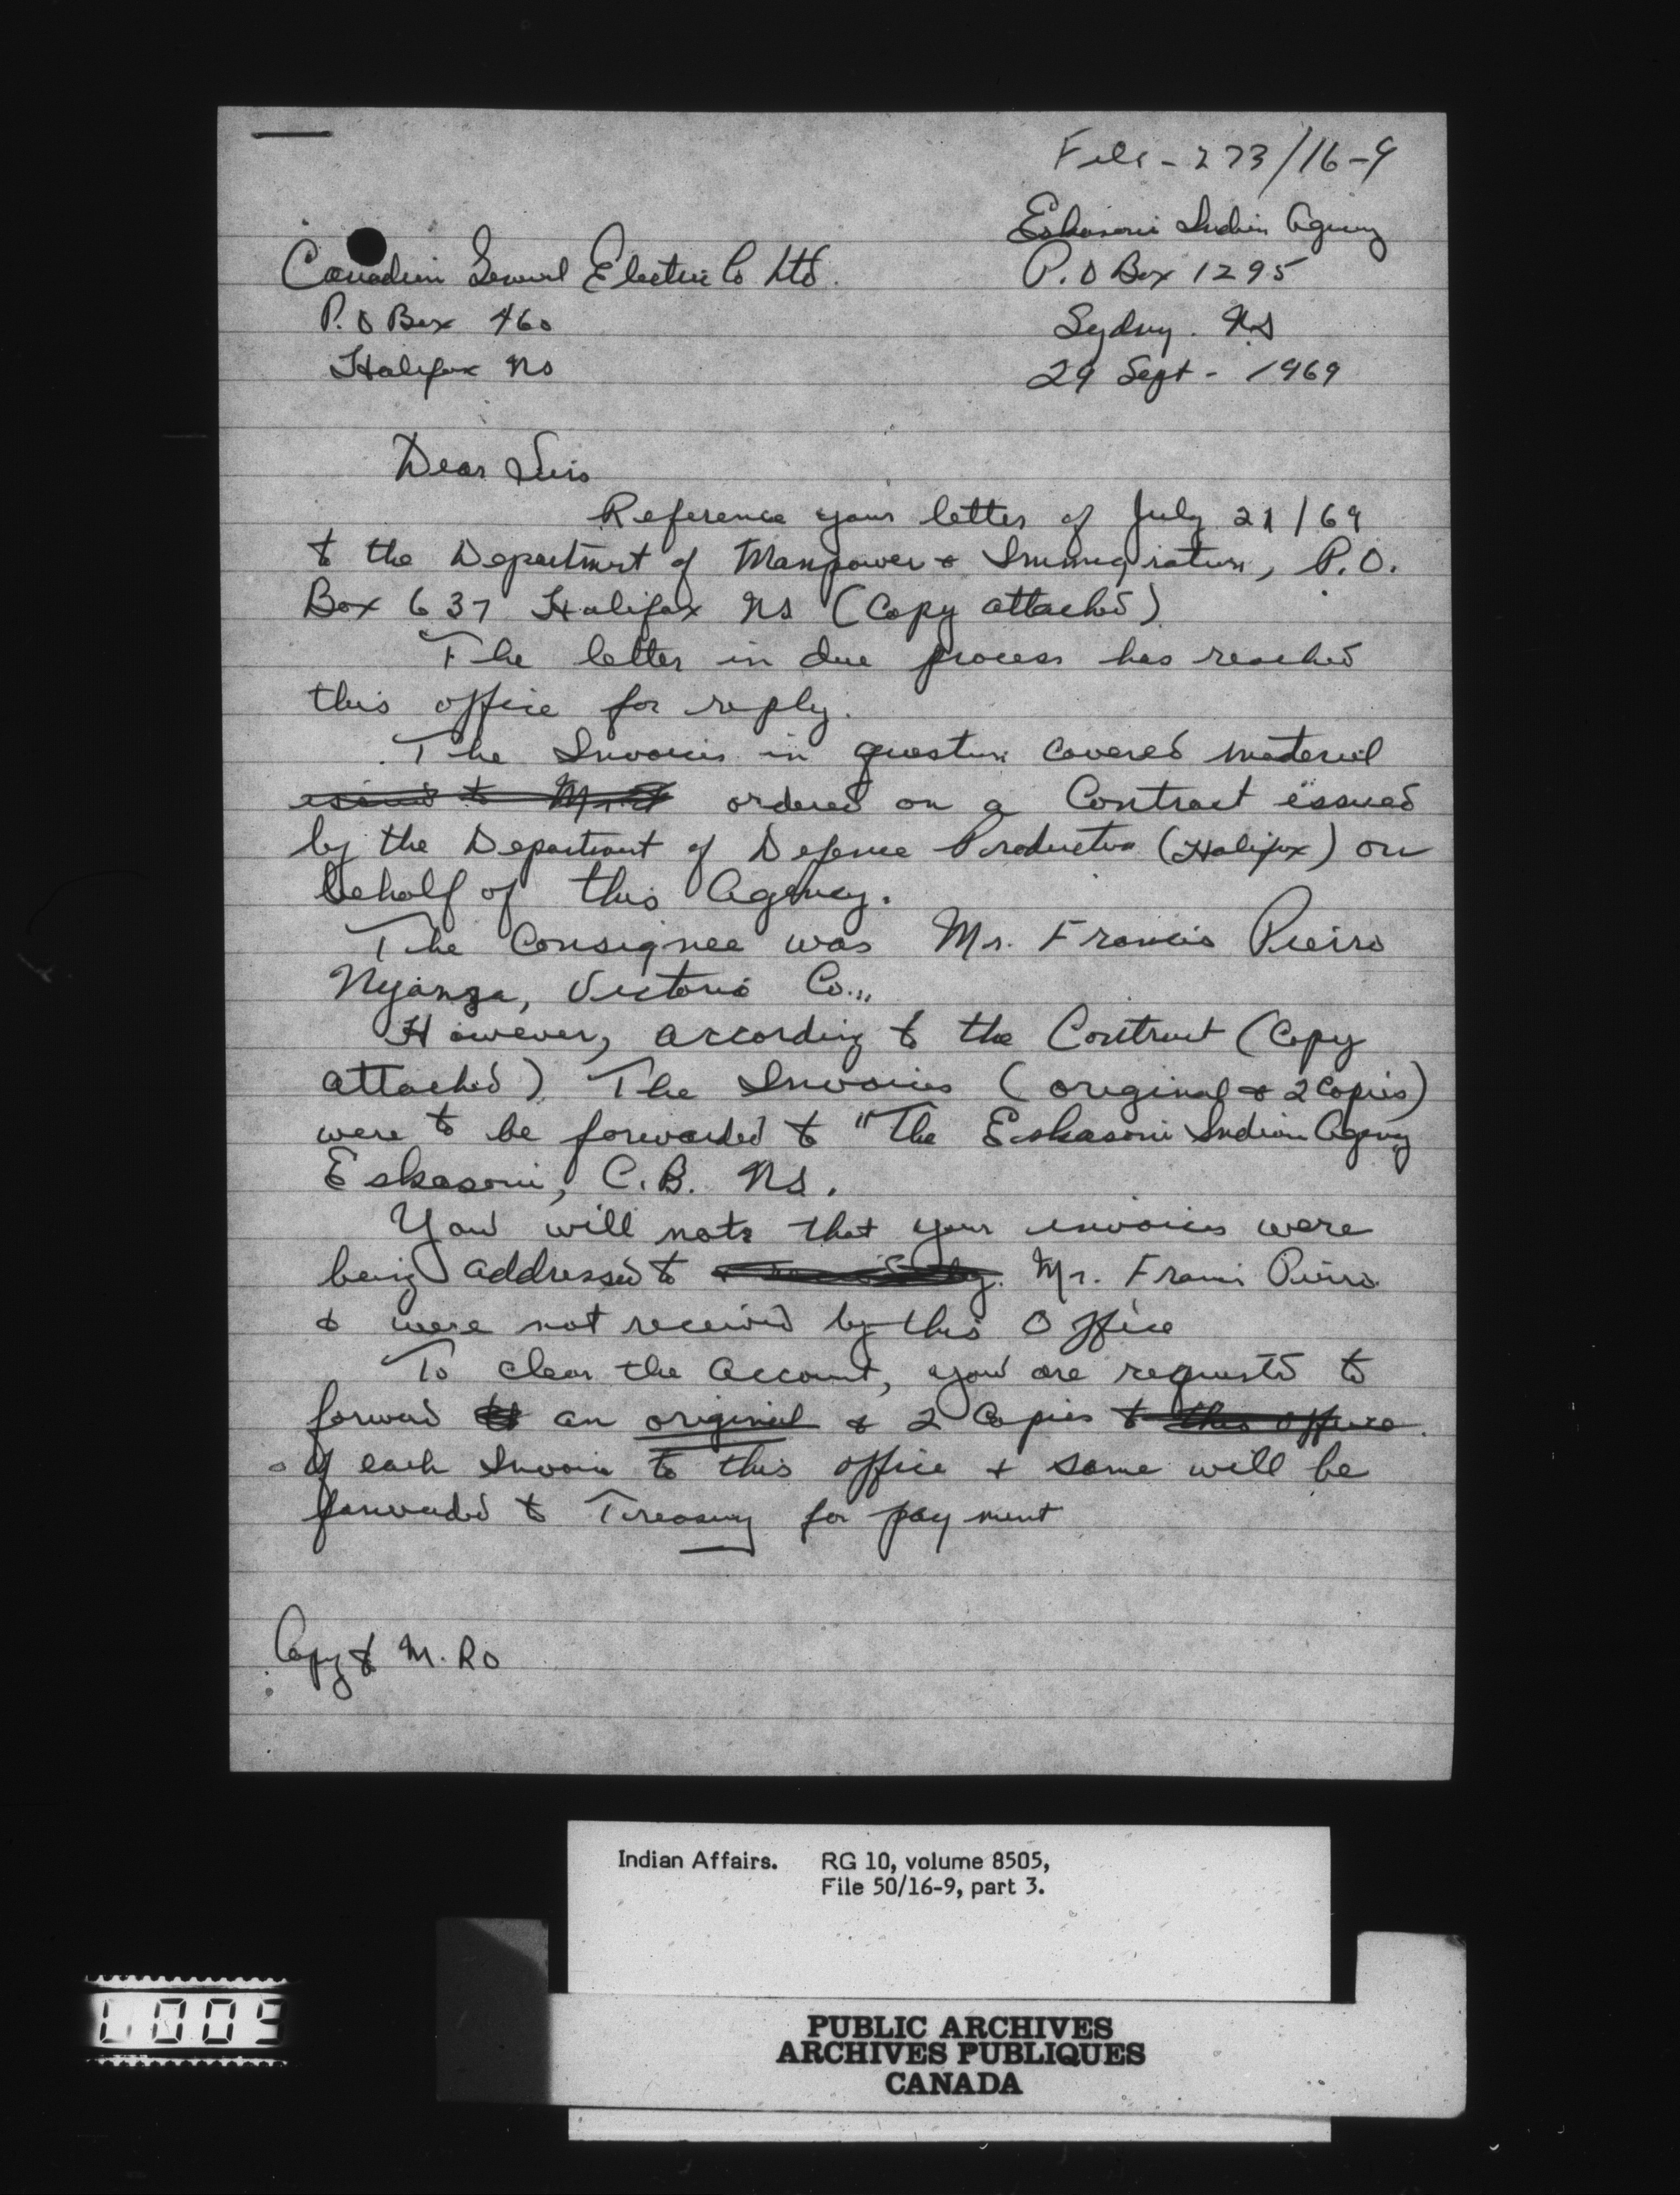 File - 273/16-9
Eskasoni Indian Agency
P.O Box 1295
Sydney. N.S
29 Sept - 1969
Canadian General Electric Co Ltd.
P.O Box 460
Halifax NS
Dear Sirs
Reference your letter of July 21/69
to the Department of Manpower & Immigration, P.O.
Box 637 Halifax NS (Copy attached)
The letter in due process has reached
this office for reply.
The Invoices in question covered material
issued to ordered on a Contract issued
by the Department of Defence Production (Halifax) on
behalf of this Agency.
The Consignee was Mr. Francis Pierro
Nyanza, Victoria Co.,,
However, according to the Contract (Copy
attached). The Invoices (original & 2 Copies)
were to be forwarded to "The Eskasoni Indian Agency
Eskasoni, C.B. NS.
You will note that your invoices were
being addressed to Mr. Francis Pierro
& were not received by this Office
To clear the Account, you are requested to
forward an original & 2 Copies to this office.
of each Invoice to this office & same will be
forwarded to Treasury for payment
Copy to M. RO
Indian Affairs. RG 10, volume 8505,
File 50/16-9, part 3.
PUBLIC ARCHIVES
ARCHIVES PUBLIQUES
CANADA